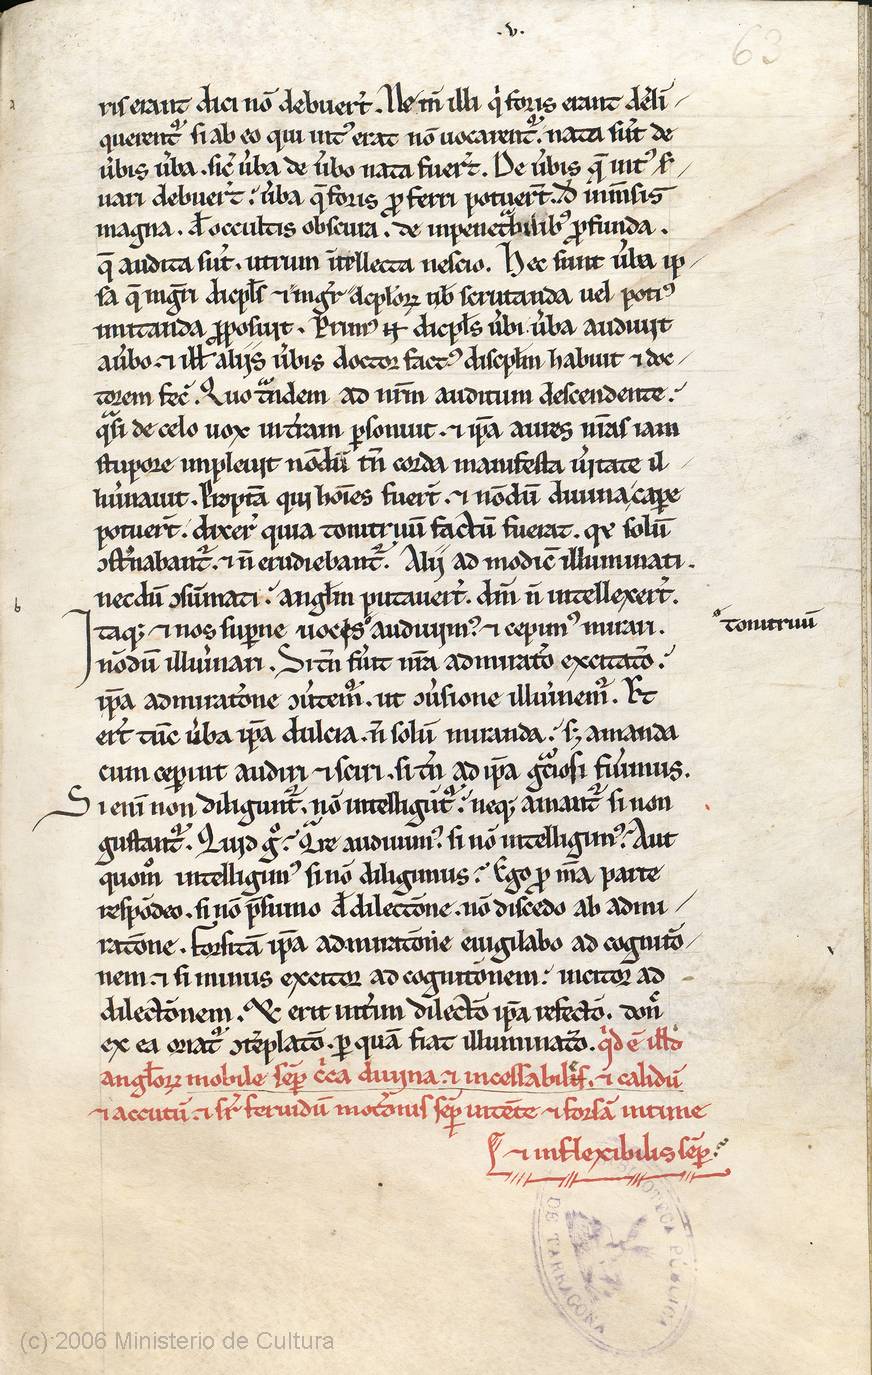 .v.
63
ris erant dici nō debuer̄t. Ne m̄ illi q̇ foris erant deli /
querentᷣ si ab eo qui int᾽ erat nō uocarentᷣ. nata sūt de
ūbis ūba. sic̄ ūba de ūbo nata fuer̄t. De ūbis q̄ int᾽
uari debuer̄t: ūba q̄ foris ꝓferri potuer̄t. d̄ inm̄sis
magna. d̄ occultis obscura. de inpenetᵃbilib᾽ ꝓfunda.
q̄ audita sūt. utrum ītellecta nescio. Hec sunt ūba ip /
sa q̄ scrutanda uel poti᾽
imitanda ꝓposuit. Prim᾽ dicipl̄s ūbi ūba audiuit
a ūbo. ⁊ ill̄ aliis ūbis doctor fact᾽ discipl̄m habuit ⁊ doc /
torem fec̄. Quo tᵃndem ad nr̄m auditum descendente:
qᵃsi de celo uox int̄ram ꝑsonuit. ⁊ ip̄a aures nr̄as iam
stupore impleuit nōdū tn̄ corda manifesta ūitate il /
luminauit. Propt̄a qui hoīes fuer̄t. ⁊ nōdū diuina capere
potuer̄t. dixer̄ quia tonitruū factū fuerat. qꝛ solū
ꝯst̄nabantᷣ. ⁊ n̄ erudiebantᷣ. Alij ad modic̄ illuminati.
necdū ꝯsūmati: angl̄m putauer̄t. dm̄ n̄ intellexer̄t.
Itaqꝫ ⁊ nos sup̄ne uoces audiuim᾽ ⁊ cepim᾽ mirari.
tonitruū
nōdū illuminari. Si tn̄ fūit nr̄a admirat̄o excitat̄o:
ip̄a admirat̄one ut ꝯūsione illuminemᷣ. Et
er̄t tūc ūba ip̄a dulcia. n̄ solū miranda: sꝫ amanda
cum ceꝑint audiri ⁊ sciri. si tn̄ ad ip̄a gᵃciosi fūimus.
Si eni non diliguntᷣ. nō intelligūtᷣ: neqꝫ amantᷣ si non
gustantᷣ. Quid gͦ: Qᵃre audiuim᾽. si nō intelligim᾽: Aut
quom̊ intelligim᾽ si nō diligimus: Ego ꝓ m̄a parte
respōdeo. si nō p̄sumo d̄ dilect̄one. nō discedo ab admi /
rat̄one. forsitā ip̄a admirat̄one euigilabo ad cognit̄o /
nem. ⁊ si minus excitor ad cognit̄onem: incitor ad
dilect̄onem. Et erit int̄im dilect̄o ip̄a refect̄o. don̄
ex ea oriatᷣ ꝯtēplat̄o. ꝑ quā fiat illuminat̄o. qͥd ē illd̄
angl̄oꝝ mobile sēꝑ c̄ca diuina. ⁊ incessabile. ⁊ calidū
⁊ accutū. ⁊ sr̄ feruidū mot̄onis sēꝑ intēte ⁊ forsā intime
⁊ inflexibilis sēꝑ.
BIBLIOTECA PÚBLICA
DE TARRAGONA
(c) 2006 Ministerio de Cultura